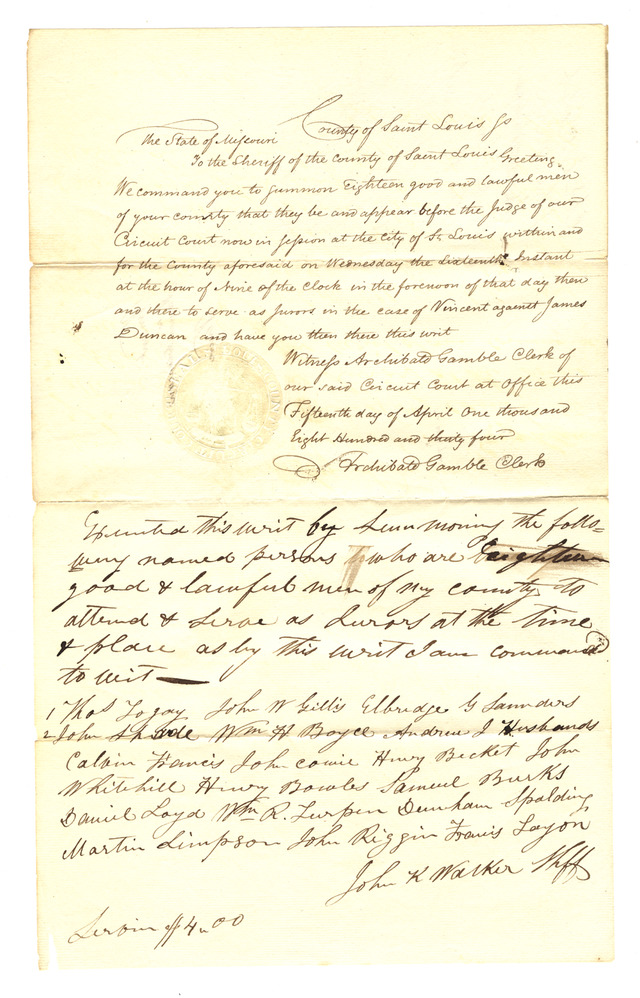 County of Saint Louis Ss
The State of Missouri
To the Sheriff of the county of Saint Louis Greeting
We command you to summon Eighteen good and lawful men
of your county that they be and appear before the Judge of our
Circuit Court now in session at the city of St Louis within and
for the County aforesaid on Wednesday the Sixteenth Instant
at the hour of Nine of the Clock in the forenoon of that day then
and there to serve as Jurors in the case of Vincent against James
Duncan and have you then there this writ
Witness Archibald Gamble Clerk of
our said Circuit Court at Office this
Fifteenth day of April One thousand
Eight Hundred and thirty four
Archibald Gamble Clerk
Executed this writ by Summoning the follo-
wing named persons who are eighteen
good & lawful men of my county to
attend & serve as Jurors at the time
& place as by this writ I am commanded
to wit —
1 Thos John W Gillis Elbridge G Saunders
2 John Wm H Boyce Andrew J Husbands
Calvin Francis John cowie Henry Becket John
Whitehill Henry Bowles Samuel Burks
Daniel Loyd Wm R. Turpen Dunham Spalding
Martin Simpson John Riggin Francis
John K Walker Shff
4.00